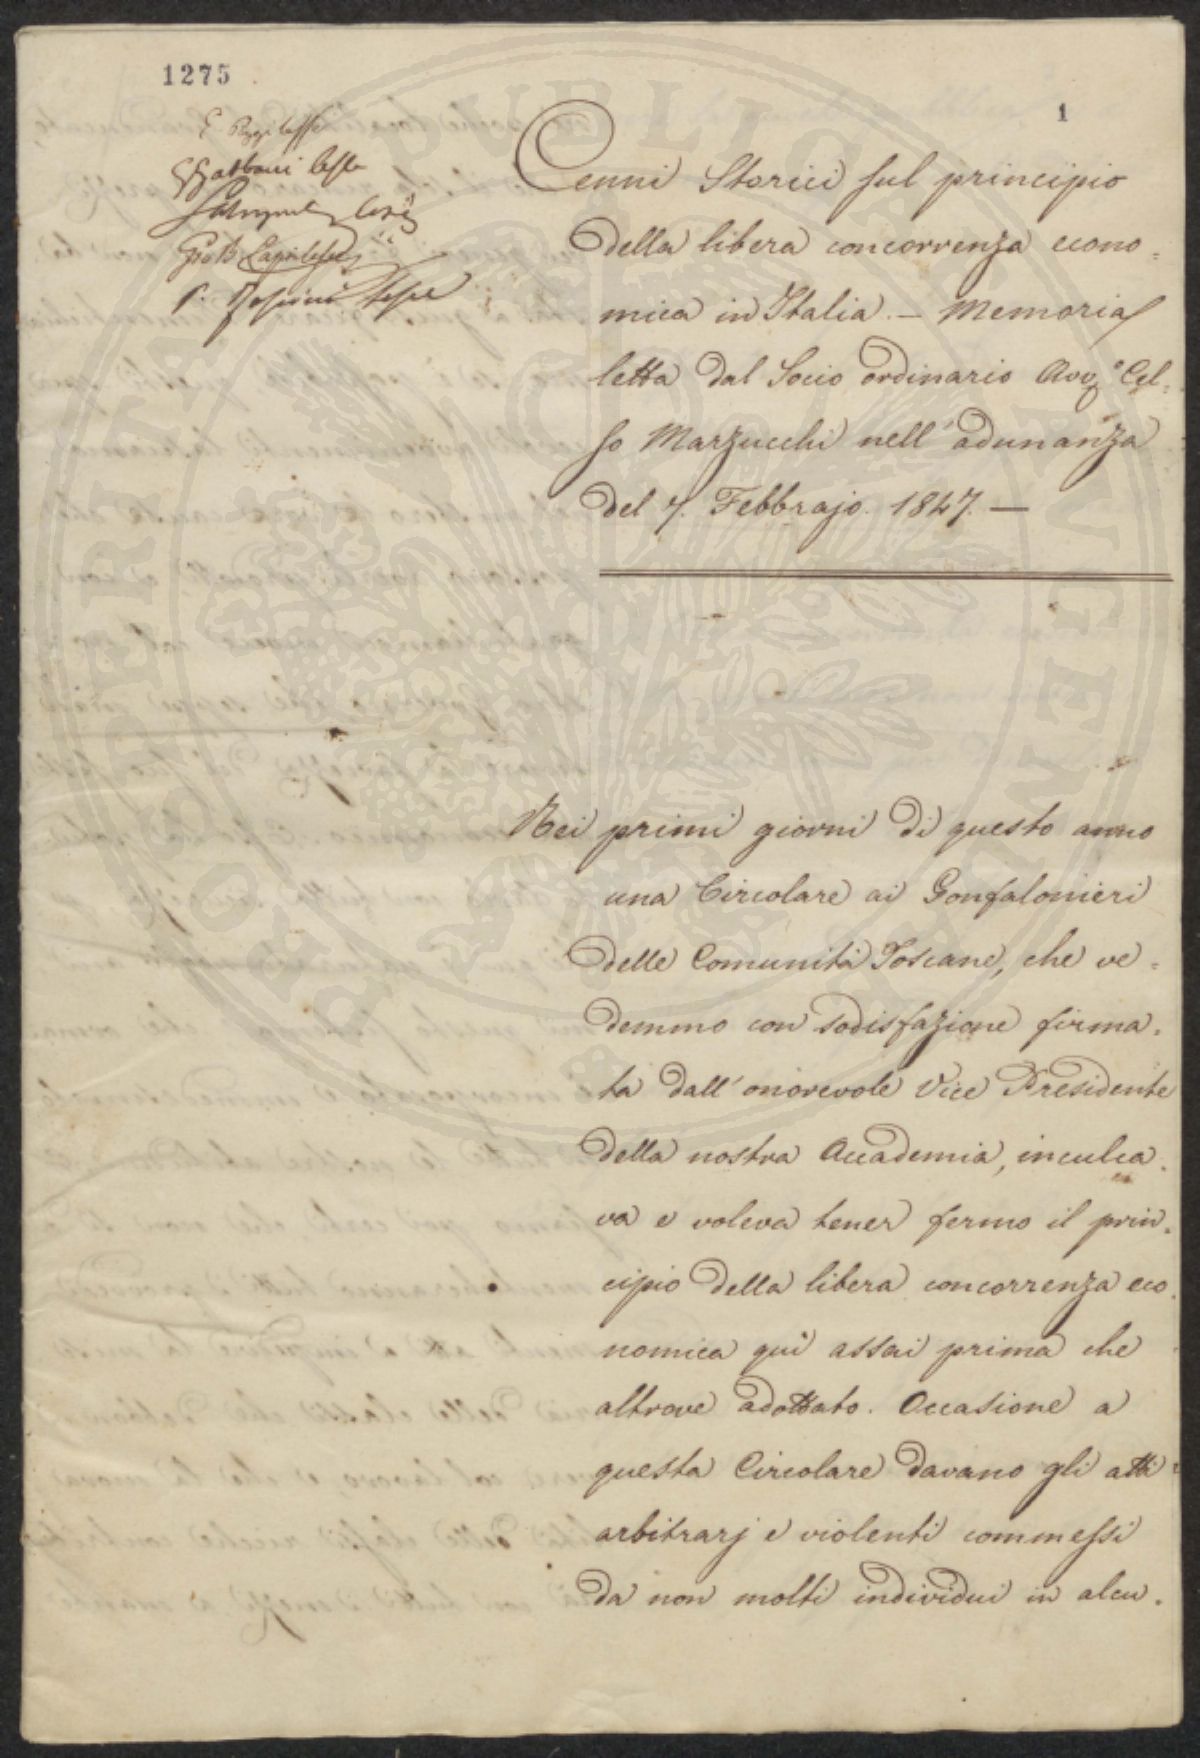 1275
1
Cenni Storici sul principio
della libera concorrenza econo=
mica in Italia. — Memoria
letta dal Socio ordinario Avv.o Cel=
so Marzucchi nell'adunanza
del 7. Febbrajo. 1847. —
Nei primi giorni di questo anno
una Circolare ai Gonfalonieri
delle Comunità Toscane, che ve=
demmo con sodisfazione firma=
ta dall'onorevole Vice Presidente
della nostra Accademia, inculca=
va e voleva tener fermo il prin=
cipio della libera concorrenza eco=
nomica quì assai prima che
altrove adottato. Occasione a
questa Circolare davano gli atti
arbitrarj e violenti commessi
da non molti individui in alcu=